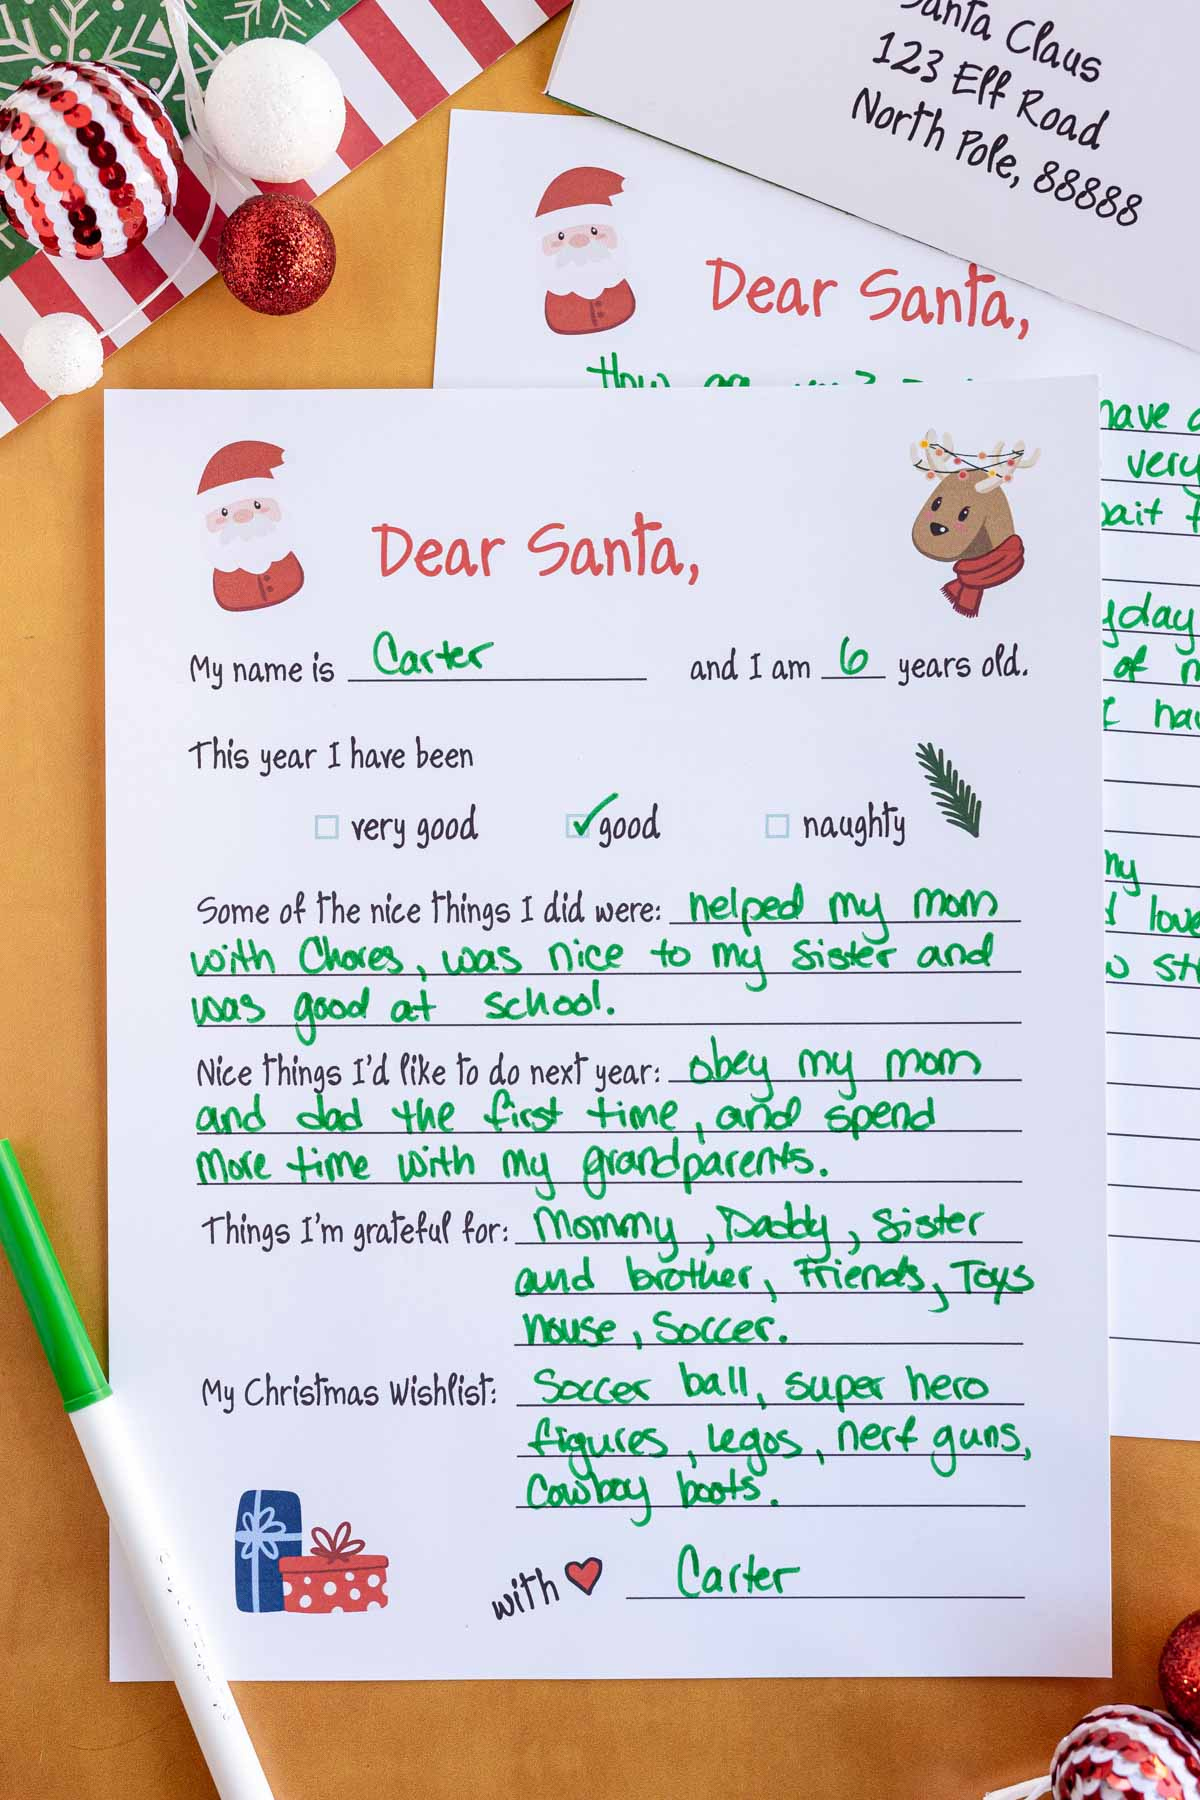 Santa Claus
123 Elf Road
North Pole, 88888
Dear Santa,
How
have
very
yday
of
my
love
Dear Santa,
My name is Carter and I am 6 years old.
This year I have been
very good ✓ good naughty
Some of the nice things I did were: helped my mom
with Chores, was nice to my sister and
was good at school.
Nice things I'd like to do next year: obey my mom
and dad the first time, and spend
more time with my grandparents.
Things I'm grateful for: Mommy, Daddy, sister
and brother, Friends, Toys
house, Soccer.
My Christmas Wishlist: Soccer ball, super hero
figures, Legos, nerf guns,
Cowboy boots.
with ❤ Carter